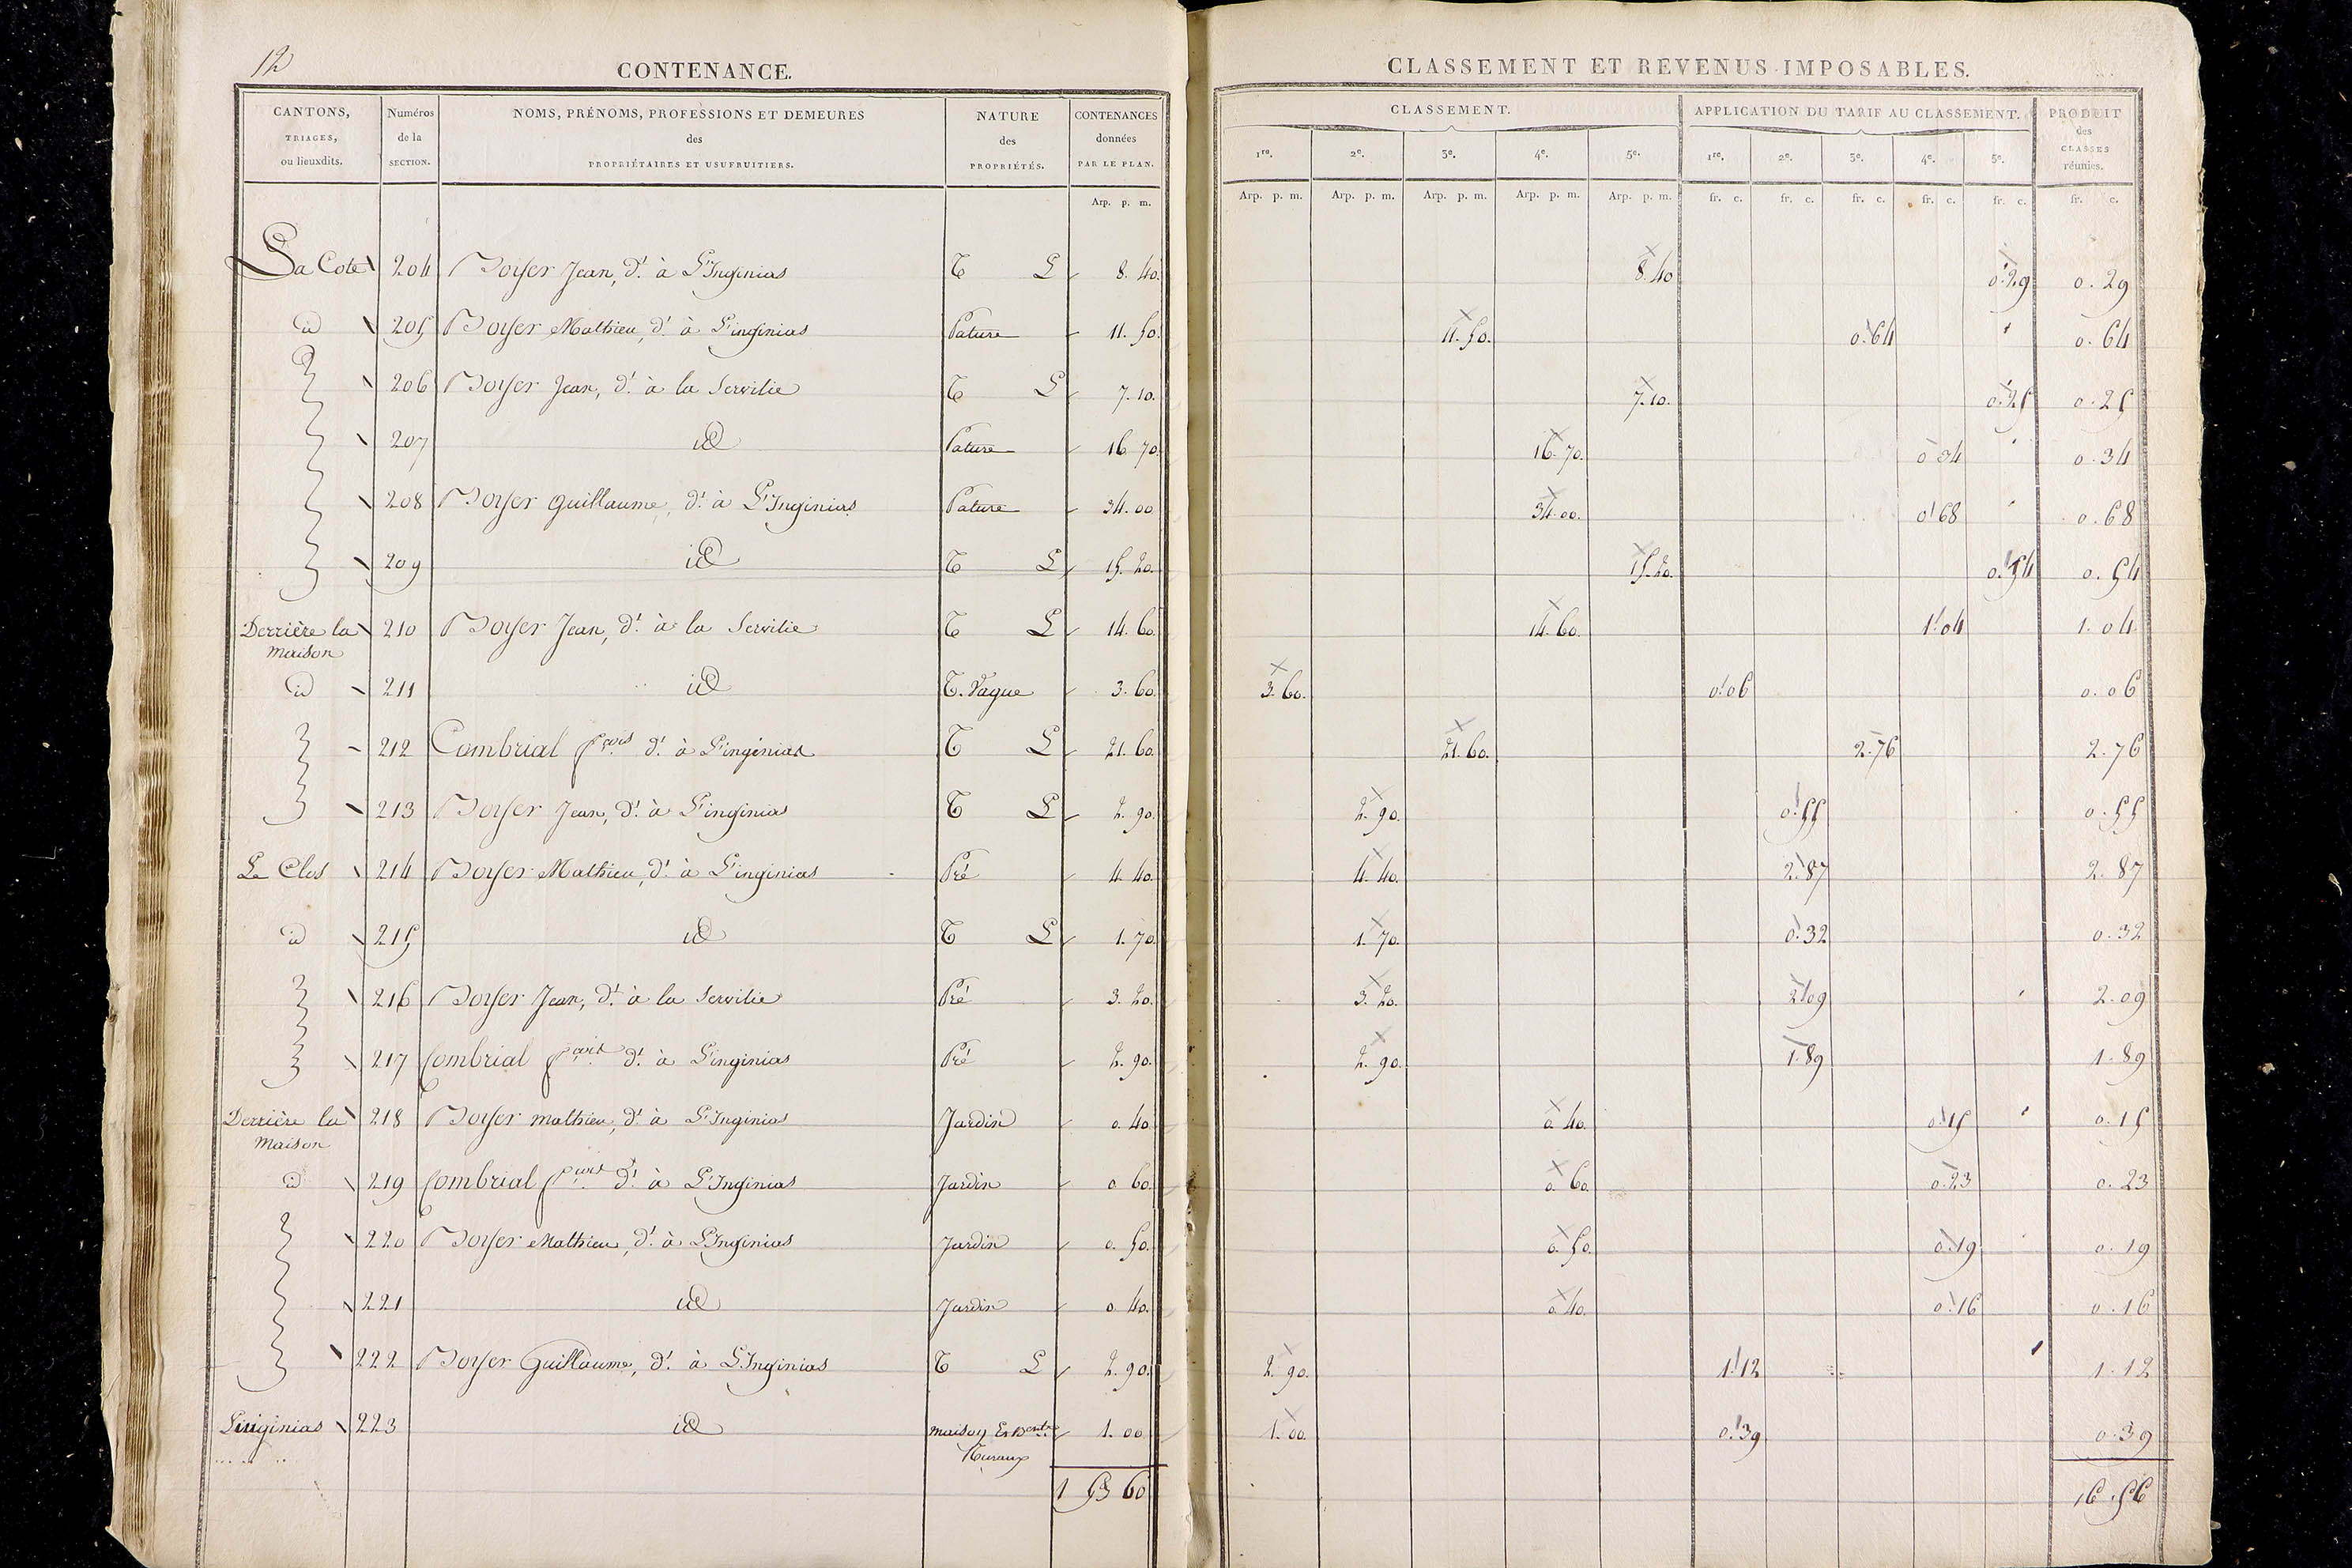 12
CONTENANCE.
CLASSEMENT ET REVENUS IMPOSABLES.
CANTONS, TRIAGES, ou lieuxdits. | Numéros de la SECTION. | NOMS, PRÉNOMS, PROFESSIONS ET DEMEURES des PROPRIÉTAIRES ET USUFRUITIERS. | NATURE des PROPRIÉTÉS. | CONTENANCES données PAR LE PLAN. | CLASSEMENT. | APPLICATION DU TARIF AU CLASSEMENT. | PRODUIT des CLASSES réunies.
1re. 2e. 3e. 4e. 5e. 1re. 2e. 3e. 4e. 5e.
Arp. p. m. Arp. p. m. Arp. p. m. Arp. p. m. Arp. p. m. Arp. p. m. fr. c. fr. c. fr. c. fr. c. fr. c. fr. c.
La Cote 204 Boyer Jean, dt. à L'Inginias T L 8. 40. 8. 40 0. 29 0. 29
id 205 Boyer Mathieu, dt. à L'inginias Pature 11. 50. 11. 50. 0. 64 0. 64
206 Boyer Jean, dt. à la Servilie T L 7. 10. 7. 10. 0. 25 0. 25
207 id Pature 16 70. 16. 70. 0 34 0. 34
208 Boyer Guillaume, dt. à L'Inginias Pature 34. 00 34. 00. 0 68 0. 68
209 id T L 15. 20. 15. 20. 0. 54 0. 54
Derrière la 210 Boyer Jean, dt. à la Servilie T L 14. 60. 14. 60. 1. 04 1. 04
maison
id 211 id T. Vague 3. 60. 3. 60. 0. 06 0. 06
212 Combrial fcois dt. à L'inginias T L 21. 60. 21. 60. 2. 76 2. 76
213 Boyer Jean, dt. à L'inginias T L 2. 90. 2. 90. 0. 55 0. 55
Le Clos 214 Boyer Mathieu, dt. à L'inginias Pré 4. 40. 4. 40. 2. 87 2. 87
id 215 id T L 1. 70. 1. 70. 0. 32 0. 32
216 Boyer Jean, dt. à la Servilie Pré 3. 20. 3. 20. 2. 09 2. 09
217 Combrial fcois dt. à L'inginias Pré 2. 90. 2. 90. 1. 89 1. 89
Derrière la 218 Boyer mathieu, dt. à L'Inginias Jardin 0. 40 0. 40. 0. 15 0. 15
Maison
id 219 Combrial fcois dt. à L'Inginias Jardin 0 60. 0. 60. 0. 23 0. 23
220 Boyer Mathieu, dt. à L'Inginias Jardin 0. 50. 0. 50. 0. 19 0. 19
221 id Jardin 0. 40. 0. 40. 0. 16 0. 16
222 Boyer Guillaume, dt. à L'Inginias T L 2. 90. 2. 90. 1. 12 1. 12
Linginias 223 id maison Et Bents 1. 00 1. 00 0. 39 0. 39
Ruraux
1 53 60 16. 56